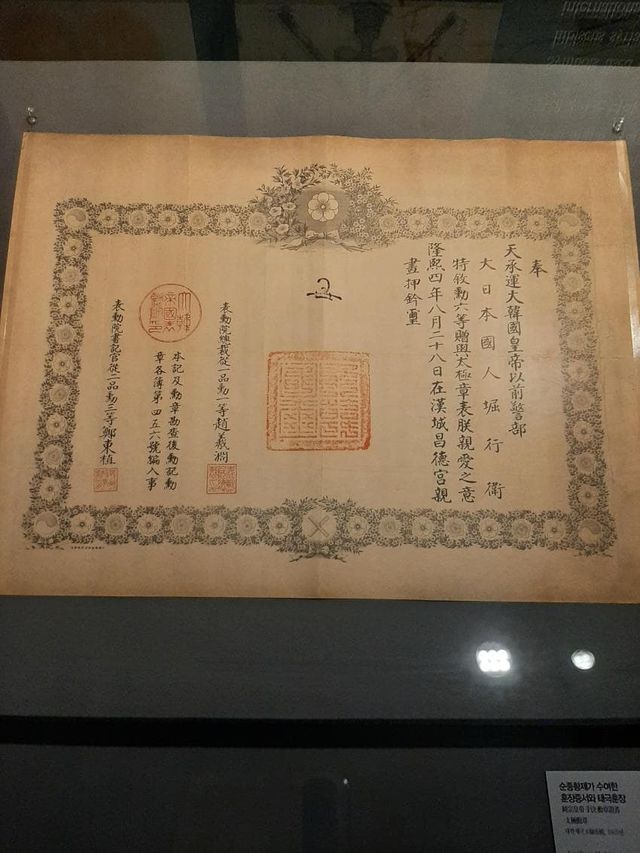 奉
天承運大韓國皇帝以前警部
大日本國人堀行衛
特敍勳六等贈與太極章表朕親愛之意
隆熙四年八月二十八日在漢城昌德宮親
畫押鈐璽
表勳院總裁從一品勳一等趙羲淵
本記及勳章勘查後勳記勳
章各簿第四五六號編入事
表勳院書記官從二品勳三等鄭東植
순종황제가 수여한
훈장증서와 태극훈장